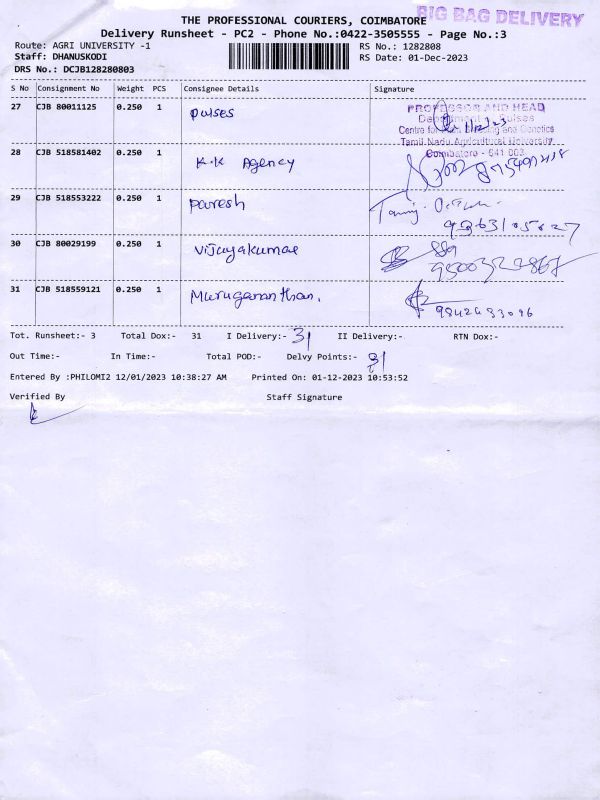 BIG BAG DELIVERY
THE PROFESSIONAL COURIERS, COIMBATORE
Delivery Runsheet - PC2 - Phone No.:0422-3505555 - Page No.:3
Route: AGRI UNIVERSITY -1
RS No.: 1282808
Staff: DHANUSKODI
RS Date: 01-Dec-2023
DRS No.: DCJB128280803
S No Consignment No Weight PCS Consignee Details Signature
27 CJB 80011125 0.250 1 pulses
PROFESSOR AND HEAD
Department Pulses
Centre for Plant Breeding and Genetics
Tamil Nadu Agricultural University
Coimbatore - 641 003
28 CJB 518581402 0.250 1 K.K Agency
29 CJB 518553222 0.250 1 Paresh
30 CJB 80029199 0.250 1 Vijayakumar
31 CJB 518559121 0.250 1 Muruganan than.
9842633096
Tot. Runsheet:- 3 Total Dox:- 31 I Delivery:- 31 II Delivery:- RTN Dox:-
Out Time:- In Time:- Total POD:- Delvy Points:- 31
Entered By :PHILOMI2 12/01/2023 10:38:27 AM Printed On: 01-12-2023 10:53:52
Verified By Staff Signature